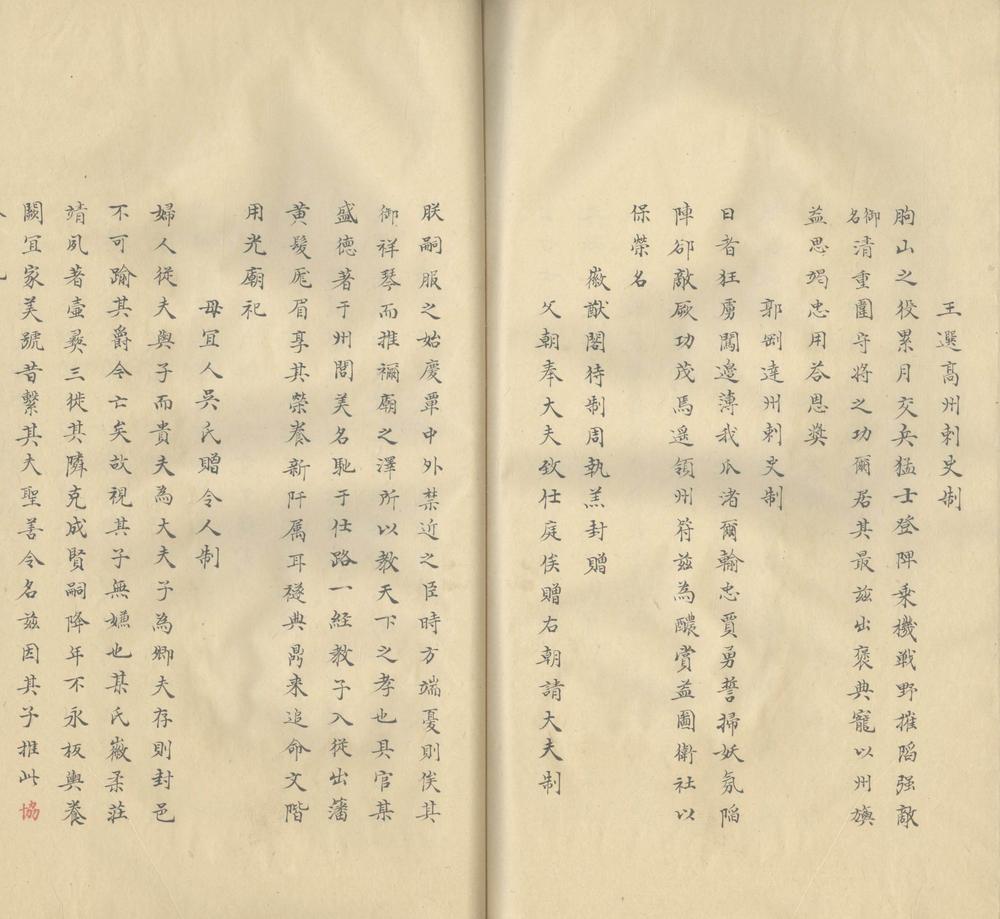 王選高州刺史制
朐山之役累月交兵猛士登陴乗機戰野摧陷强敵
御名清重圍守將之功爾居其最兹出褒典寵以州旟
益思竭忠用荅恩奬
郭剛達州刺史制
日者狂虜闖邉薄我瓜渚爾輸忠賈勇誓掃妖氛陷
陣郤敵厥功茂焉遥領州符兹為醲賞益圖衛社以
保榮名
徽猷閣待制周執羔封贈
父朝奉大夫致仕庭俟贈右朝請大夫制
朕嗣服之始慶覃中外禁近之臣時方端憂則俟其
御祥琴而推禰廟之澤所以教天下之孝也具官某
盛德著于州閭美名馳于仕路一經教子入從出藩
黄髪厖眉享其榮養新阡厲耳襚典鼎来追命文階
用光廟祀
母宜人吳氏贈令人制
婦人從夫與子而貴夫為大夫子為卿夫存則封邑
不可踰其爵今亡矣故視其子無嫌也某氏徽柔莊
靖夙著壼彛三徙其隣克成賢嗣降年不永板輿養
闕宜家美號昔繫其夫聖善令名兹因其子推此協